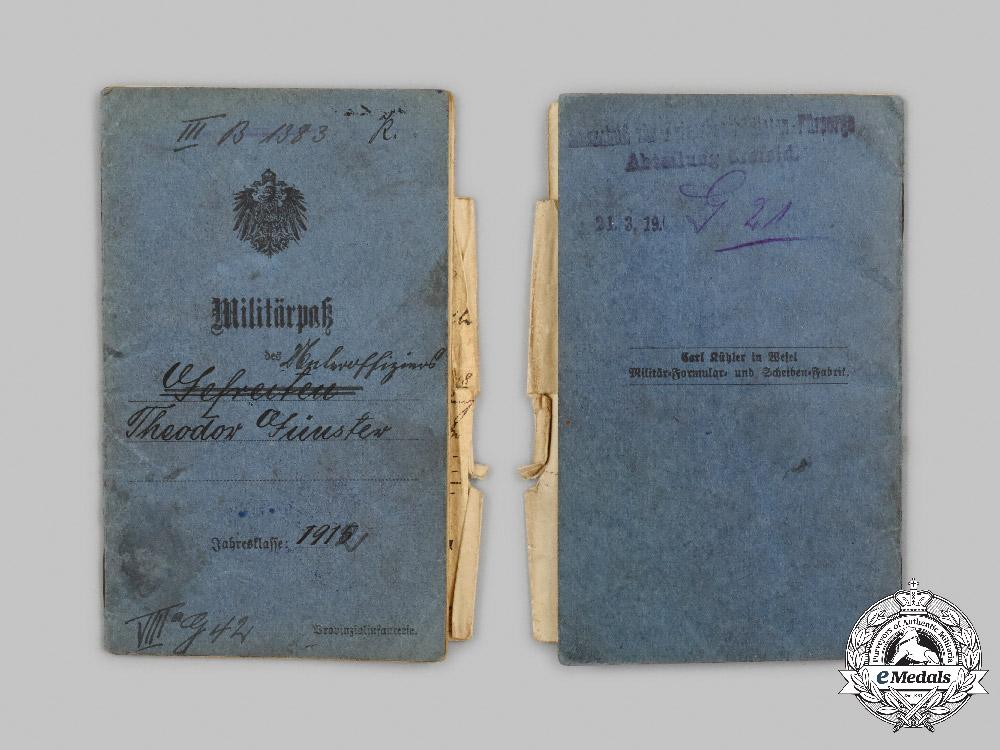 III B 1383 K.
Militärpaß
des Unteroffiziers
Gefreiten
Theodor Günster
Jahresklasse: 1912
VIII a G 42
Provinzialinfanterie.
Abteilung Krefeld.
21. 3. 19. G 21
Carl Kühler in Wesel
Militär-Formular- und Scheiben-Fabrik.
Purveyors of Authentic Militaria
eMedals